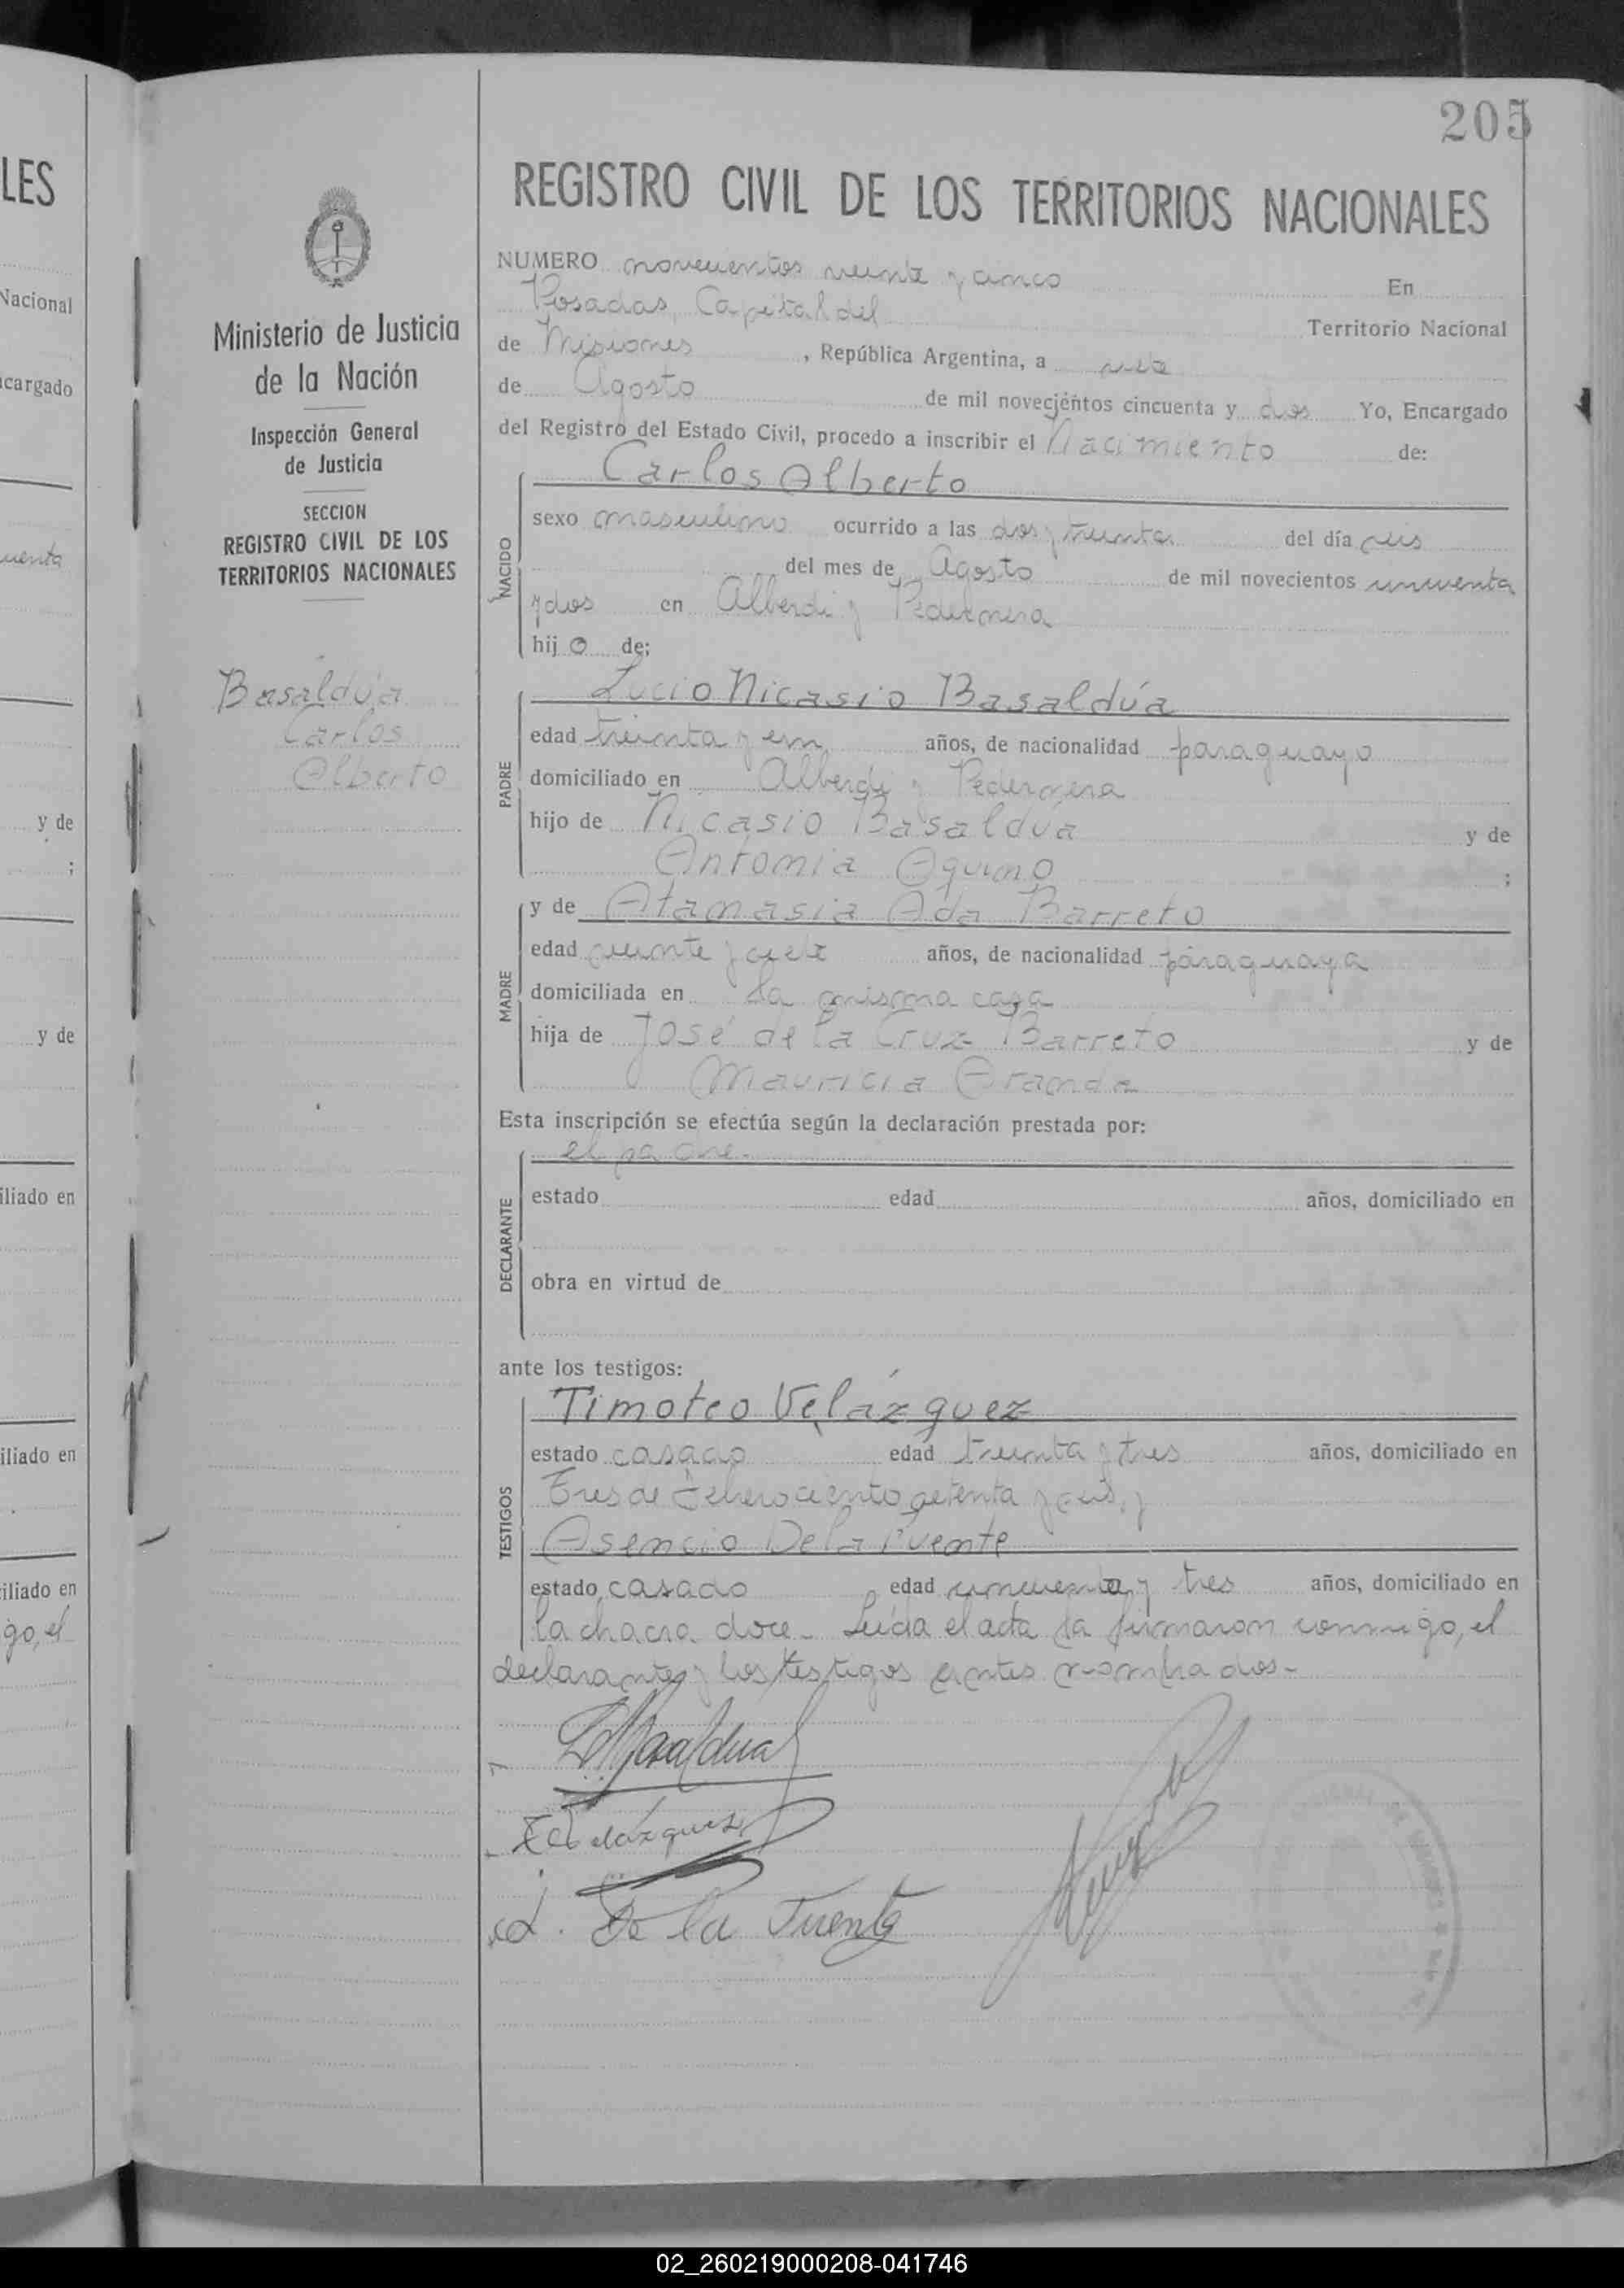 LES
Nacional
cargado
uenta
y de
;
y de
iliado en
iliado en
iliado en
go, el
Ministerio de Justicia
de la Nación
Inspección General
de Justicia
SECCION
REGISTRO CIVIL DE LOS
TERRITORIOS NACIONALES
Basaldúa
Carlos
Alberto
205
REGISTRO CIVIL DE LOS TERRITORIOS NACIONALES
NUMERO novecientos veinte y cinco En
Posadas, Capital del Territorio Nacional
de Misiones , República Argentina, a siete
de Agosto de mil novecientos cincuenta y dos Yo, Encargado
del Registro del Estado Civil, procedo a inscribir el Nacimiento de:
Carlos Alberto
NACIDO
sexo masculino ocurrido a las dos y treinta del día seis
del mes de Agosto de mil novecientos cincuenta
y dos en Alberdi y Pedernera
hijo de;
Lucio Nicasio Basaldúa
PADRE
edad treinta y un años, de nacionalidad paraguayo
domiciliado en Alberdi y Pedernera
hijo de Nicasio Basaldua y de
Antonia Aquino ;
y de Atanasia Ada Barreto
MADRE
edad veinte y siete años, de nacionalidad paraguaya
domiciliada en la misma casa
hija de José de la Cruz Barreto y de
Mauricia Aranda
Esta inscripción se efectúa según la declaración prestada por:
el padre.
DECLARANTE
estado edad años, domiciliado en
obra en virtud de
ante los testigos:
Timoteo Velázquez
TESTIGOS
estado casado edad treinta y tres años, domiciliado en
Tres de Febrero ciento setenta y seis, y
Asencio De la Fuente
estado casado edad cincuenta y tres años, domiciliado en
la chacra doce. Leída el acta la firmaron conmigo, el
declarante y los testigos antes nombrados.-
Basaldua
Velázquez
A. De la Fuente
02_260219000208-041746